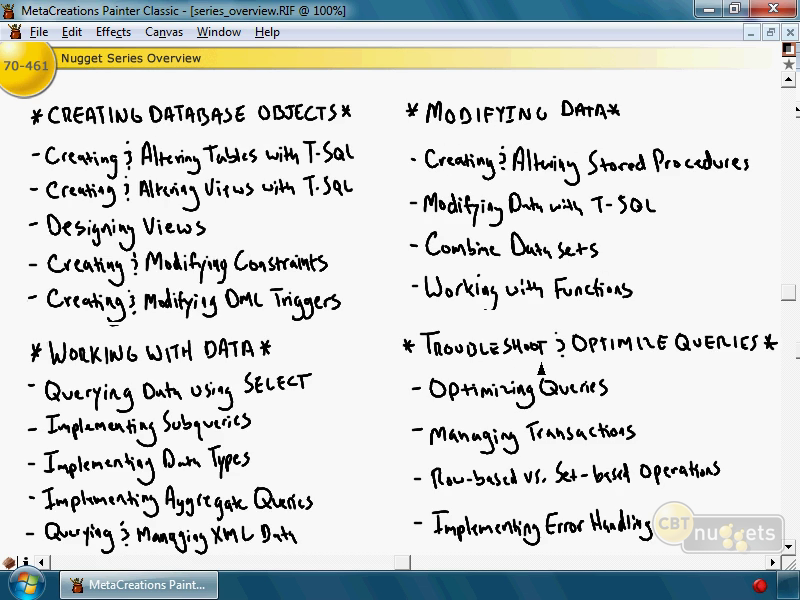 MetaCreations Painter Classic - [series_overview.RIF @ 100%]
File Edit Effects Canvas Window Help
70-461
Nugget Series Overview
*CREATING DATABASE OBJECTS*
- Creating & Altering Tables with T-SQL
- Creating & Altering Views with T-SQL
- Designing Views
- Creating & Modifying Constraints
- Creating & Modifying DML Triggers
*WORKING WITH DATA*
- Querying Data using SELECT
- Implementing Subqueries
- Implementing Data Types
- Implementing Aggregate Queries
- Querying & Managing XML Data
*MODIFYING DATA*
- Creating & Altering Stored Procedures
- Modifying Data with T-SQL
- Combine Datasets
- Working with Functions
*TROUBLESHOOT & OPTIMIZE QUERIES*
- Optimizing Queries
- Managing Transactions
- Row-based vs. Set-based Operations
- Implementing Error Handling
CBT nuggets
MetaCreations Paint...